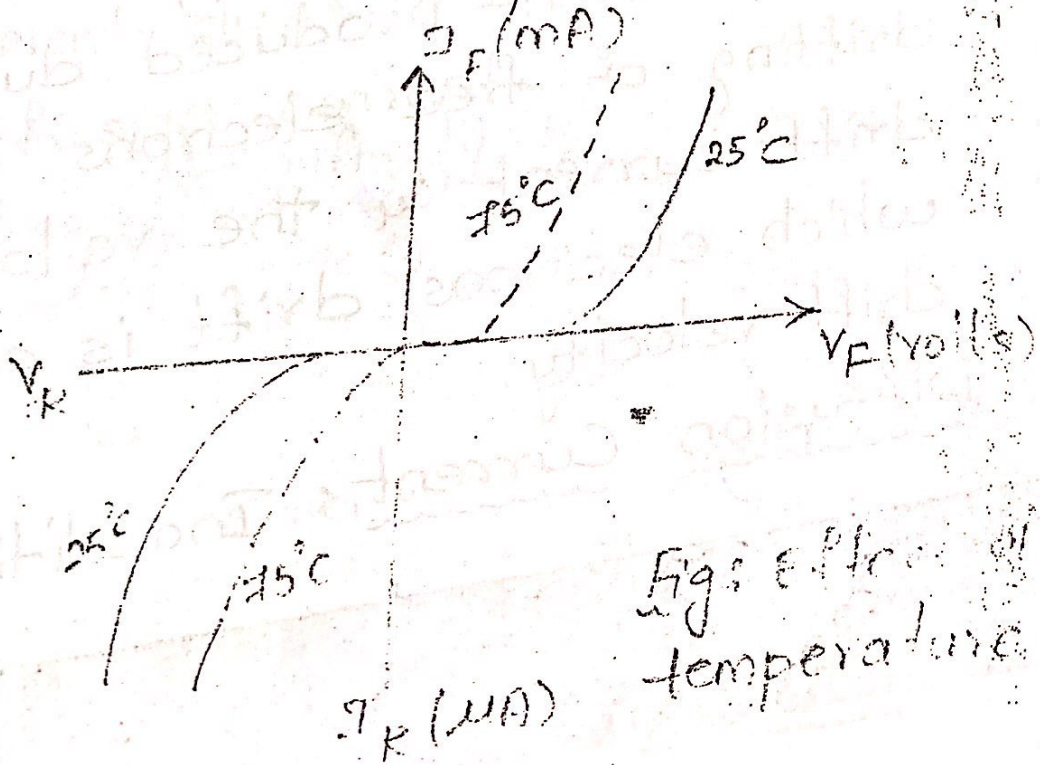 I_F (mA)
25°C
75°C
V_F (volts)
V_R
25°C
75°C
I_R (μA)
Fig: Effect of
temperature